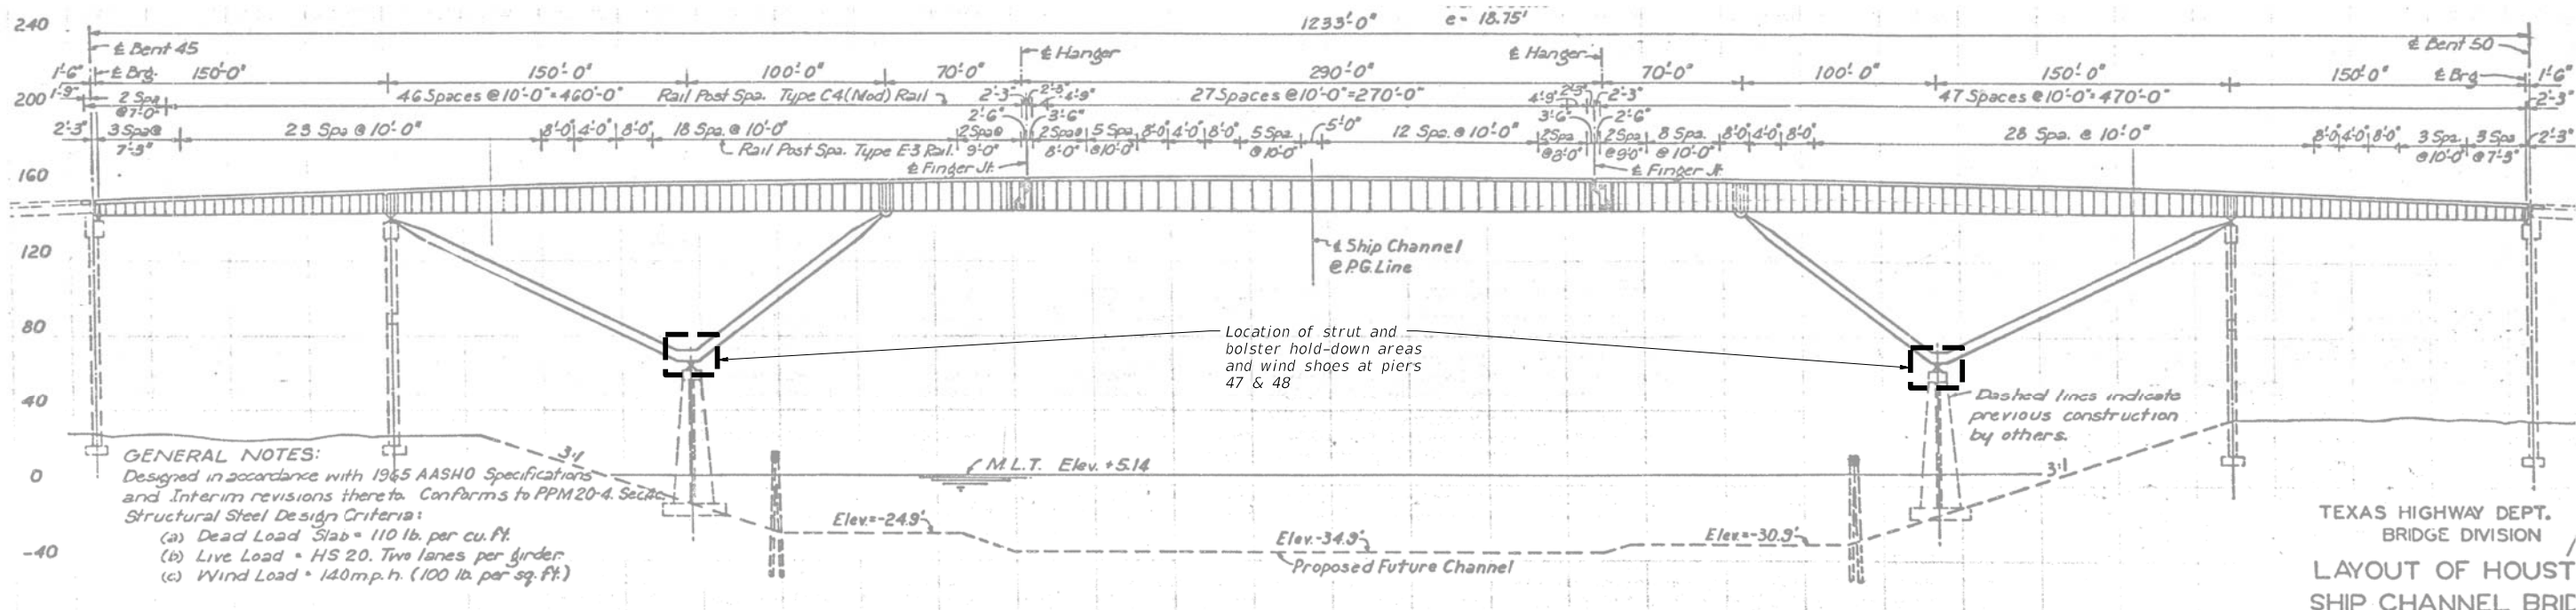 240
1233'-0"
e = 18.75'
℄ Bent 45
℄ Hanger
℄ Hanger
℄ Bent 50
1'-6"
℄ Brg.
150'-0"
150'-0"
100'-0"
70'-0"
290'-0"
70'-0"
100'-0"
150'-0"
150'-0"
℄ Brg
1'-6"
200
1'-9"
2 Spa
@7'-0"
46 Spaces @ 10'-0" = 460'-0"
Rail Post Spa. Type C4 (Mod) Rail
2'-3"
2'-3"
4'-9"
27 Spaces @ 10'-0" = 270'-0"
4'-9"
2'-3"
2'-3"
47 Spaces @ 10'-0" = 470'-0"
2'-3"
2'-6"
3'-6"
3'-6"
2'-6"
2'-3"
3 Spa @
7'-3"
23 Spa @ 10'-0"
8'-0"
4'-0"
8'-0"
18 Spa. @ 10'-0"
2 Spa @
9'-0"
2 Spa @
8'-0"
5 Spa.
@10'-0"
8'-0"
4'-0"
8'-0"
5 Spa.
@10'-0"
5'-0"
12 Spa. @ 10'-0"
2 Spa
@8'-0"
2 Spa
@9'-0"
8 Spa.
@ 10'-0"
8'-0"
4'-0"
8'-0"
28 Spa. @ 10'-0"
8'-0"
4'-0"
8'-0"
3 Spa
@10'-0"
3 Spa
@7'-3"
2'-3"
Rail Post Spa. Type E-3 Rail.
℄ Finger Jt.
℄ Finger Jt.
160
120
℄ Ship Channel
@ P.G. Line
80
Location of strut and
bolster hold-down areas
and wind shoes at piers
47 & 48
40
Dashed lines indicate
previous construction
by others.
GENERAL NOTES:
Designed in accordance with 1965 AASHO Specifications
and Interim revisions thereto. Conforms to PPM 20-4. Sec.4c
Structural Steel Design Criteria:
(a) Dead Load Slab = 110 lb. per cu. ft.
(b) Live Load = HS 20. Two lanes per girder.
(c) Wind Load = 140 m.p.h. (100 lb. per sq. ft.)
3:1
M.L.T. Elev. +5.14
3:1
0
Elev.=-24.9'
Elev.-34.9'
Elev.=-30.9'
-40
Proposed Future Channel
TEXAS HIGHWAY DEPT.
BRIDGE DIVISION
LAYOUT OF HOUST
SHIP CHANNEL BRID